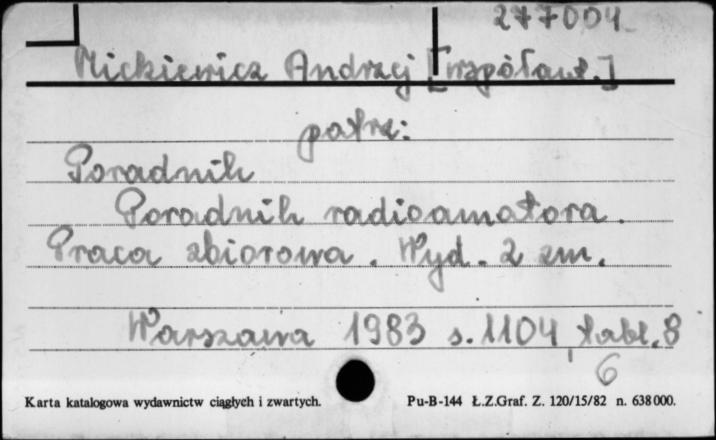 277004
Mickiewicz Andrzej [współaut.]
patrz:
Poradnik
Poradnik radioamatora.
Praca zbiorowa. Wyd. 2 zm.
Warszawa 1983 s. 1104, tabl. 8
6
Karta katalogowa wydawnictw ciągłych i zwartych. Pu-B-144 Ł.Z.Graf. Z. 120/15/82 n. 638000.